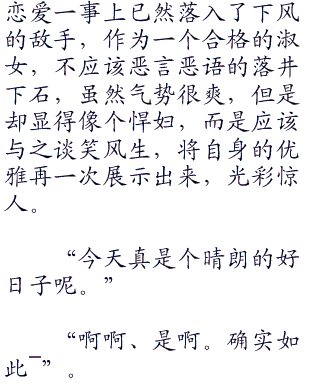 恋爱一事上已然落入了下风
的敌手，作为一个合格的淑
女，不应该恶言恶语的落井
下石，虽然气势很爽，但是
却显得像个悍妇，而是应该
与之谈笑风生，将自身的优
雅再一次展示出来，光彩惊
人。
“今天真是个晴朗的好
日子呢。”
“啊啊、是啊。确实如
此¯”。